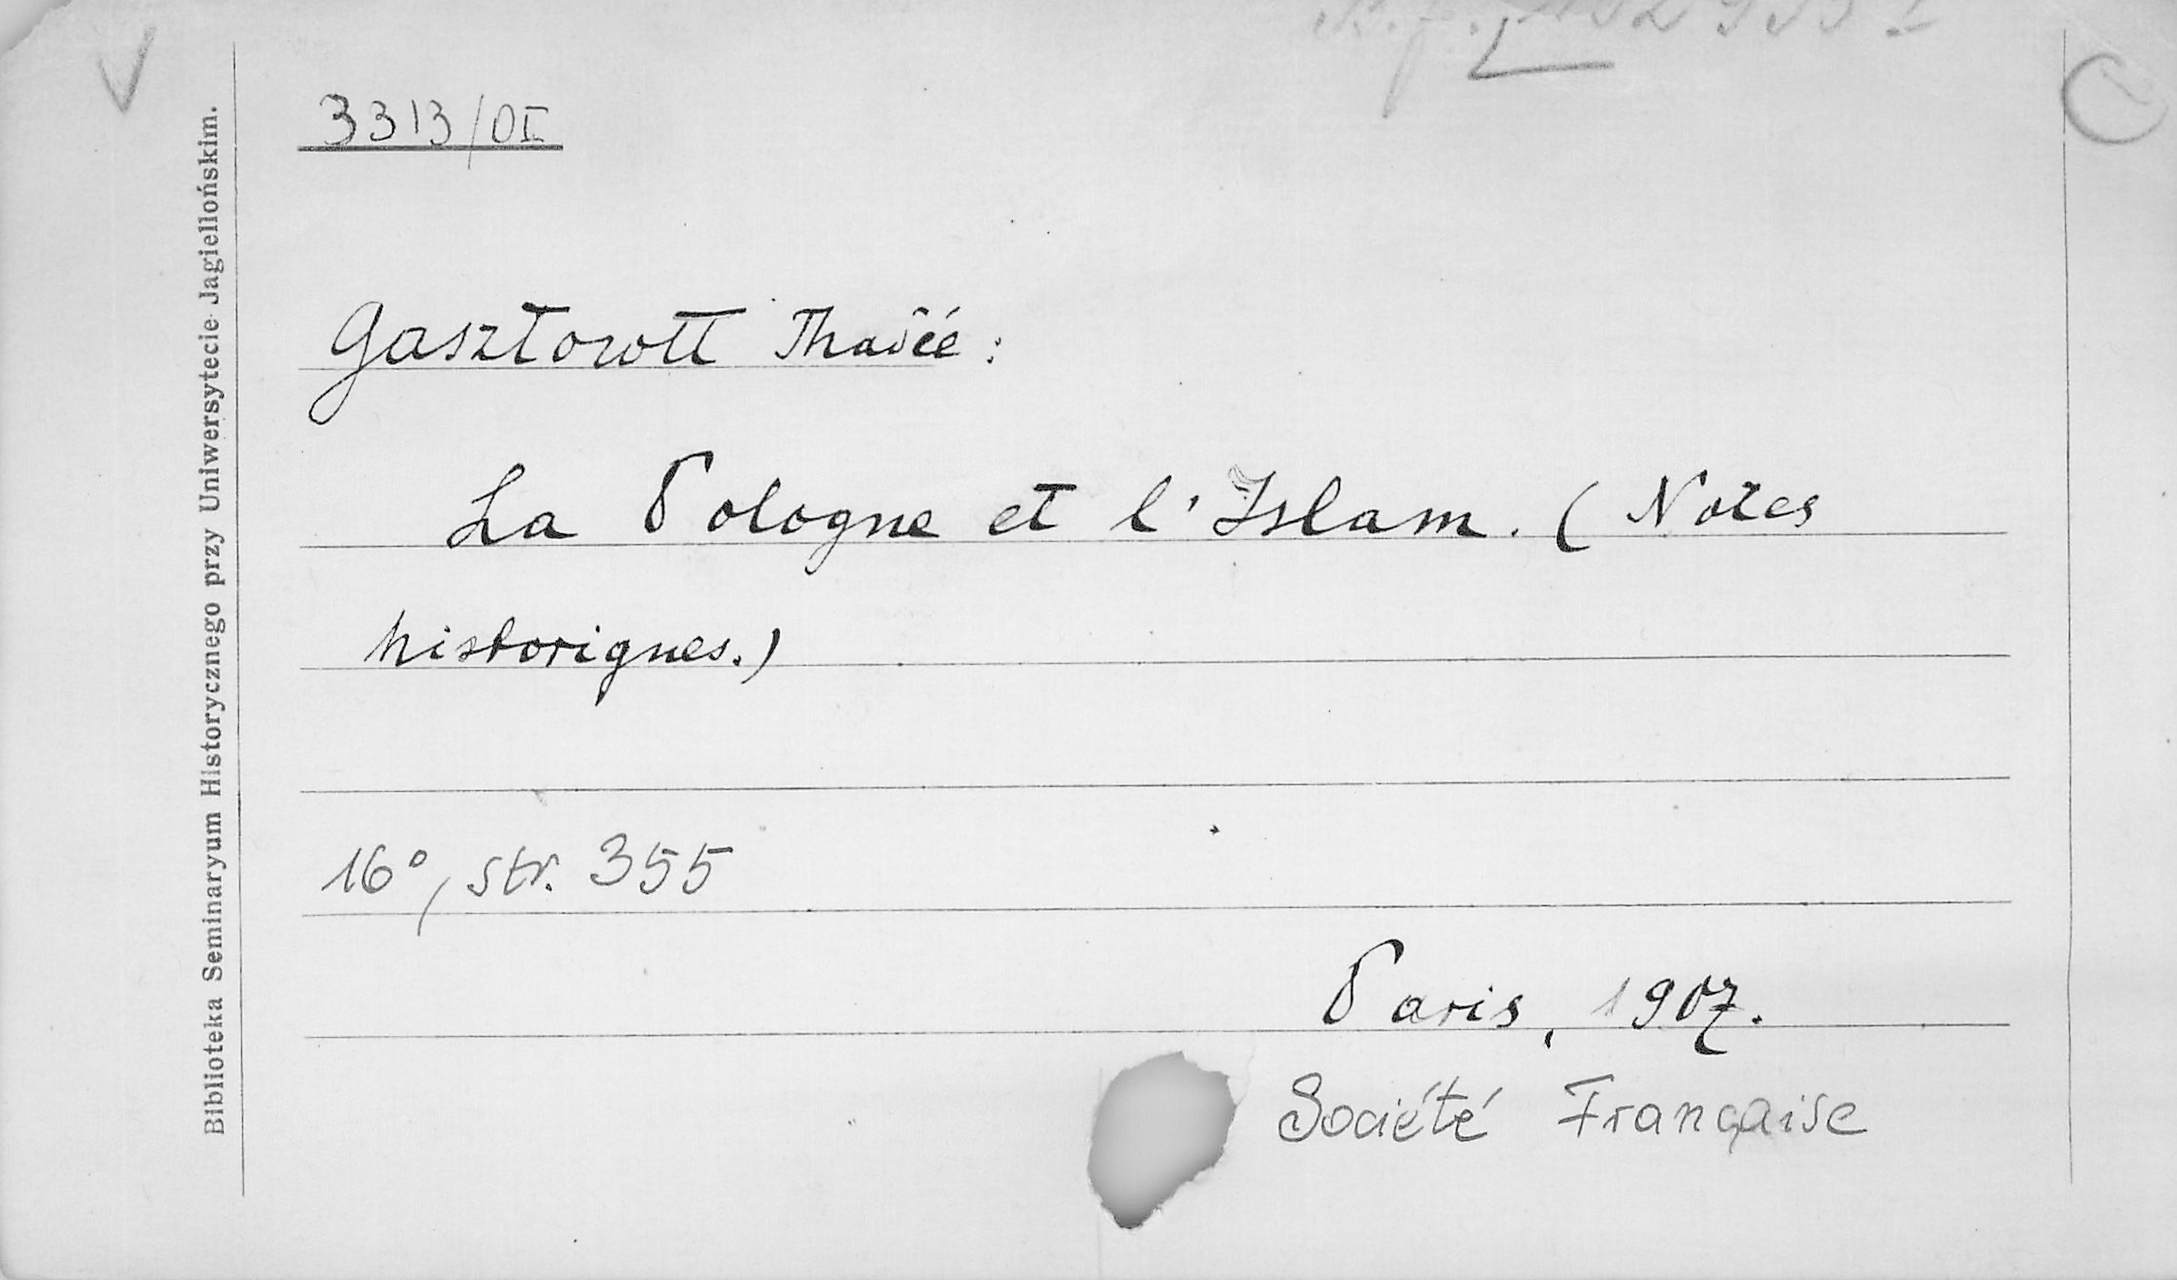 3313/OI
Gasztowtt Thadée:
La Pologne et l'Islam. (Notes
historiques.)
16°, str. 355
Paris, 1907.
Société Française
Biblioteka Seminaryum Historycznego przy Uniwersytecie Jagiellońskim.